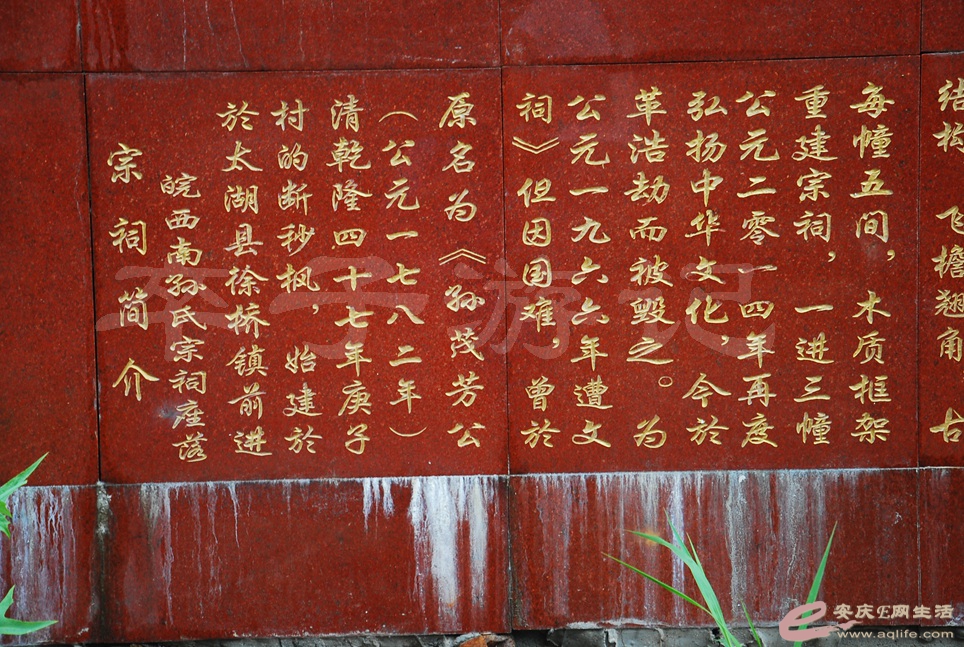 宗祠简介
皖西南孙氏宗祠座落
於太湖县徐桥镇前进
村的断秒枫，始建於
清乾隆四十七年庚子
（公元一七八二年）
原名为《孙茂芳公
祠》但因困难，曾於
公元一九六六年遭文
革浩劫而被毁之。为
弘扬中华文化，今於
公元二零一四年再度
重建宗祠，一进三幢
每幢五间，木质框架
结构，飞檐翘角，古
李子游记
安庆E网生活
www.aqlife.com